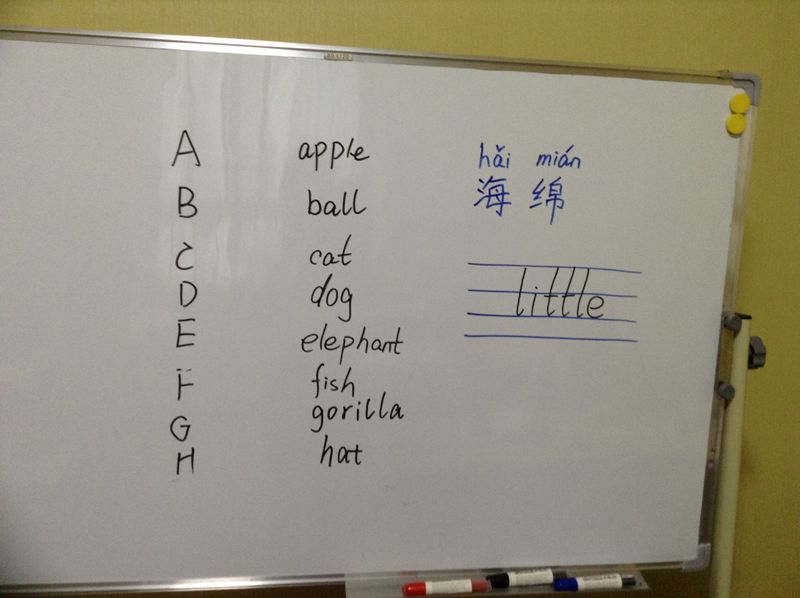 A apple
B ball
C cat
D dog
E elephant
F fish
G gorilla
H hat
hǎi mián
海绵
little